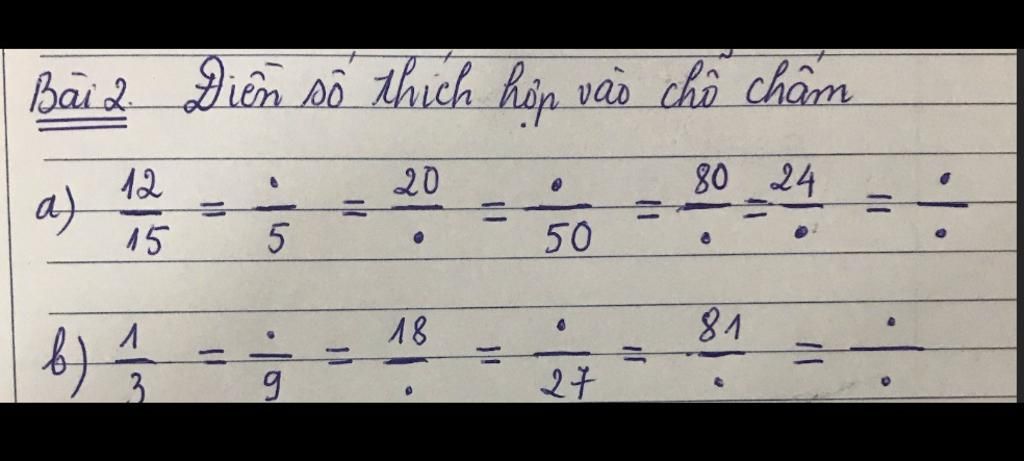 Bài 2. Điền số thích hợp vào chỗ chấm
a) 12/15 = ./5 = 20/. = ./50 = 80/. = 24/. = ./.
b) 1/3 = ./9 = 18/. = ./27 = 81/. = ./.